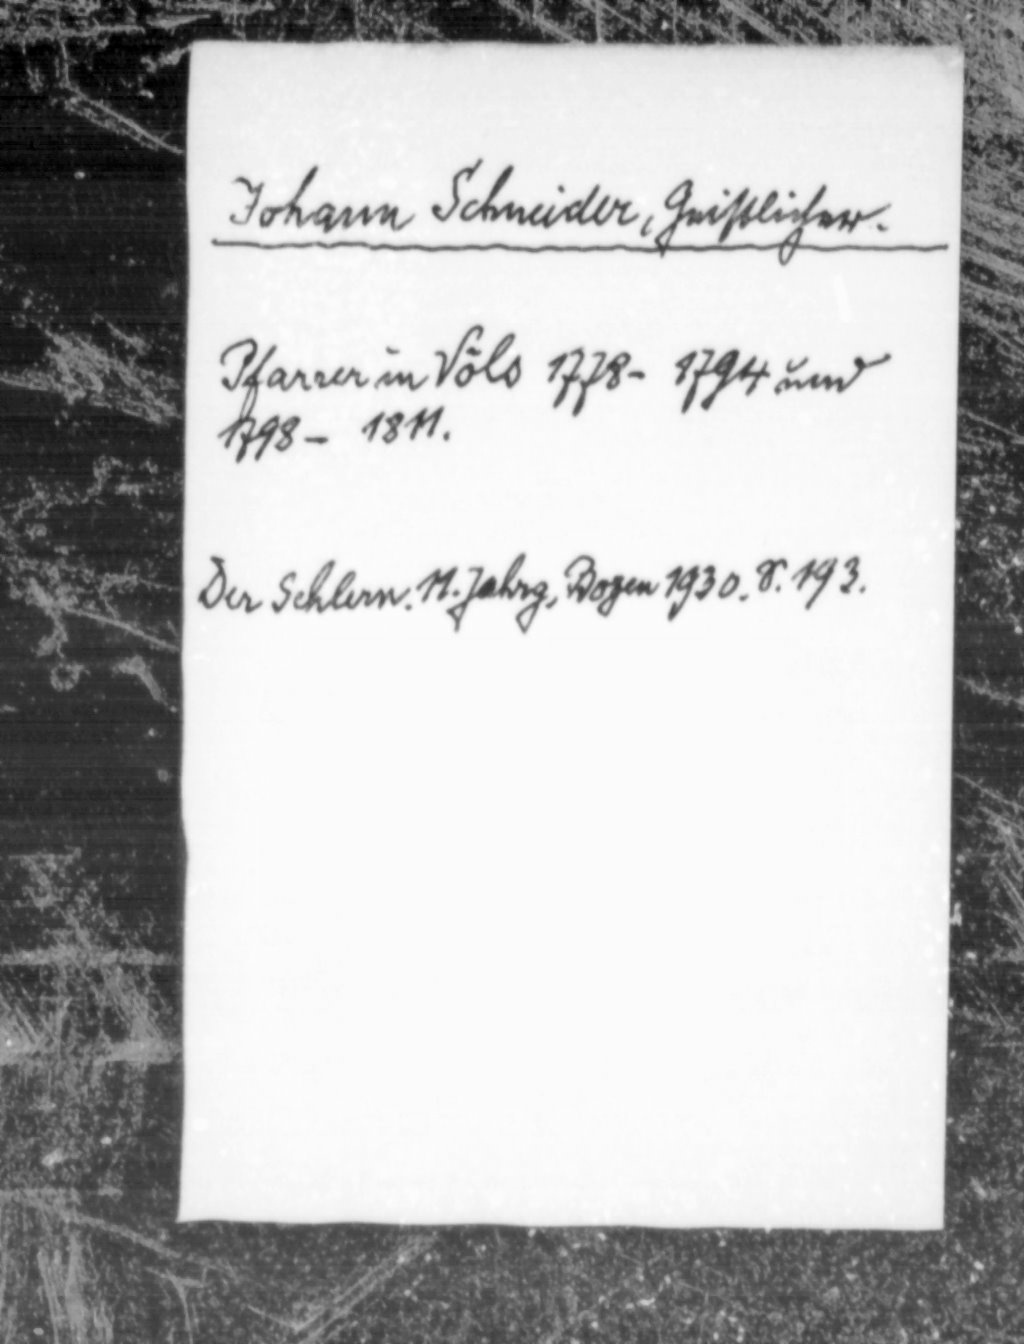 Johann Schneider, Geistlicher.
Pfarrer in Völs 1778- 1794 und
1798- 1811.
Der Schlern. 11. Jahrg, Bozen 1930. S. 193.